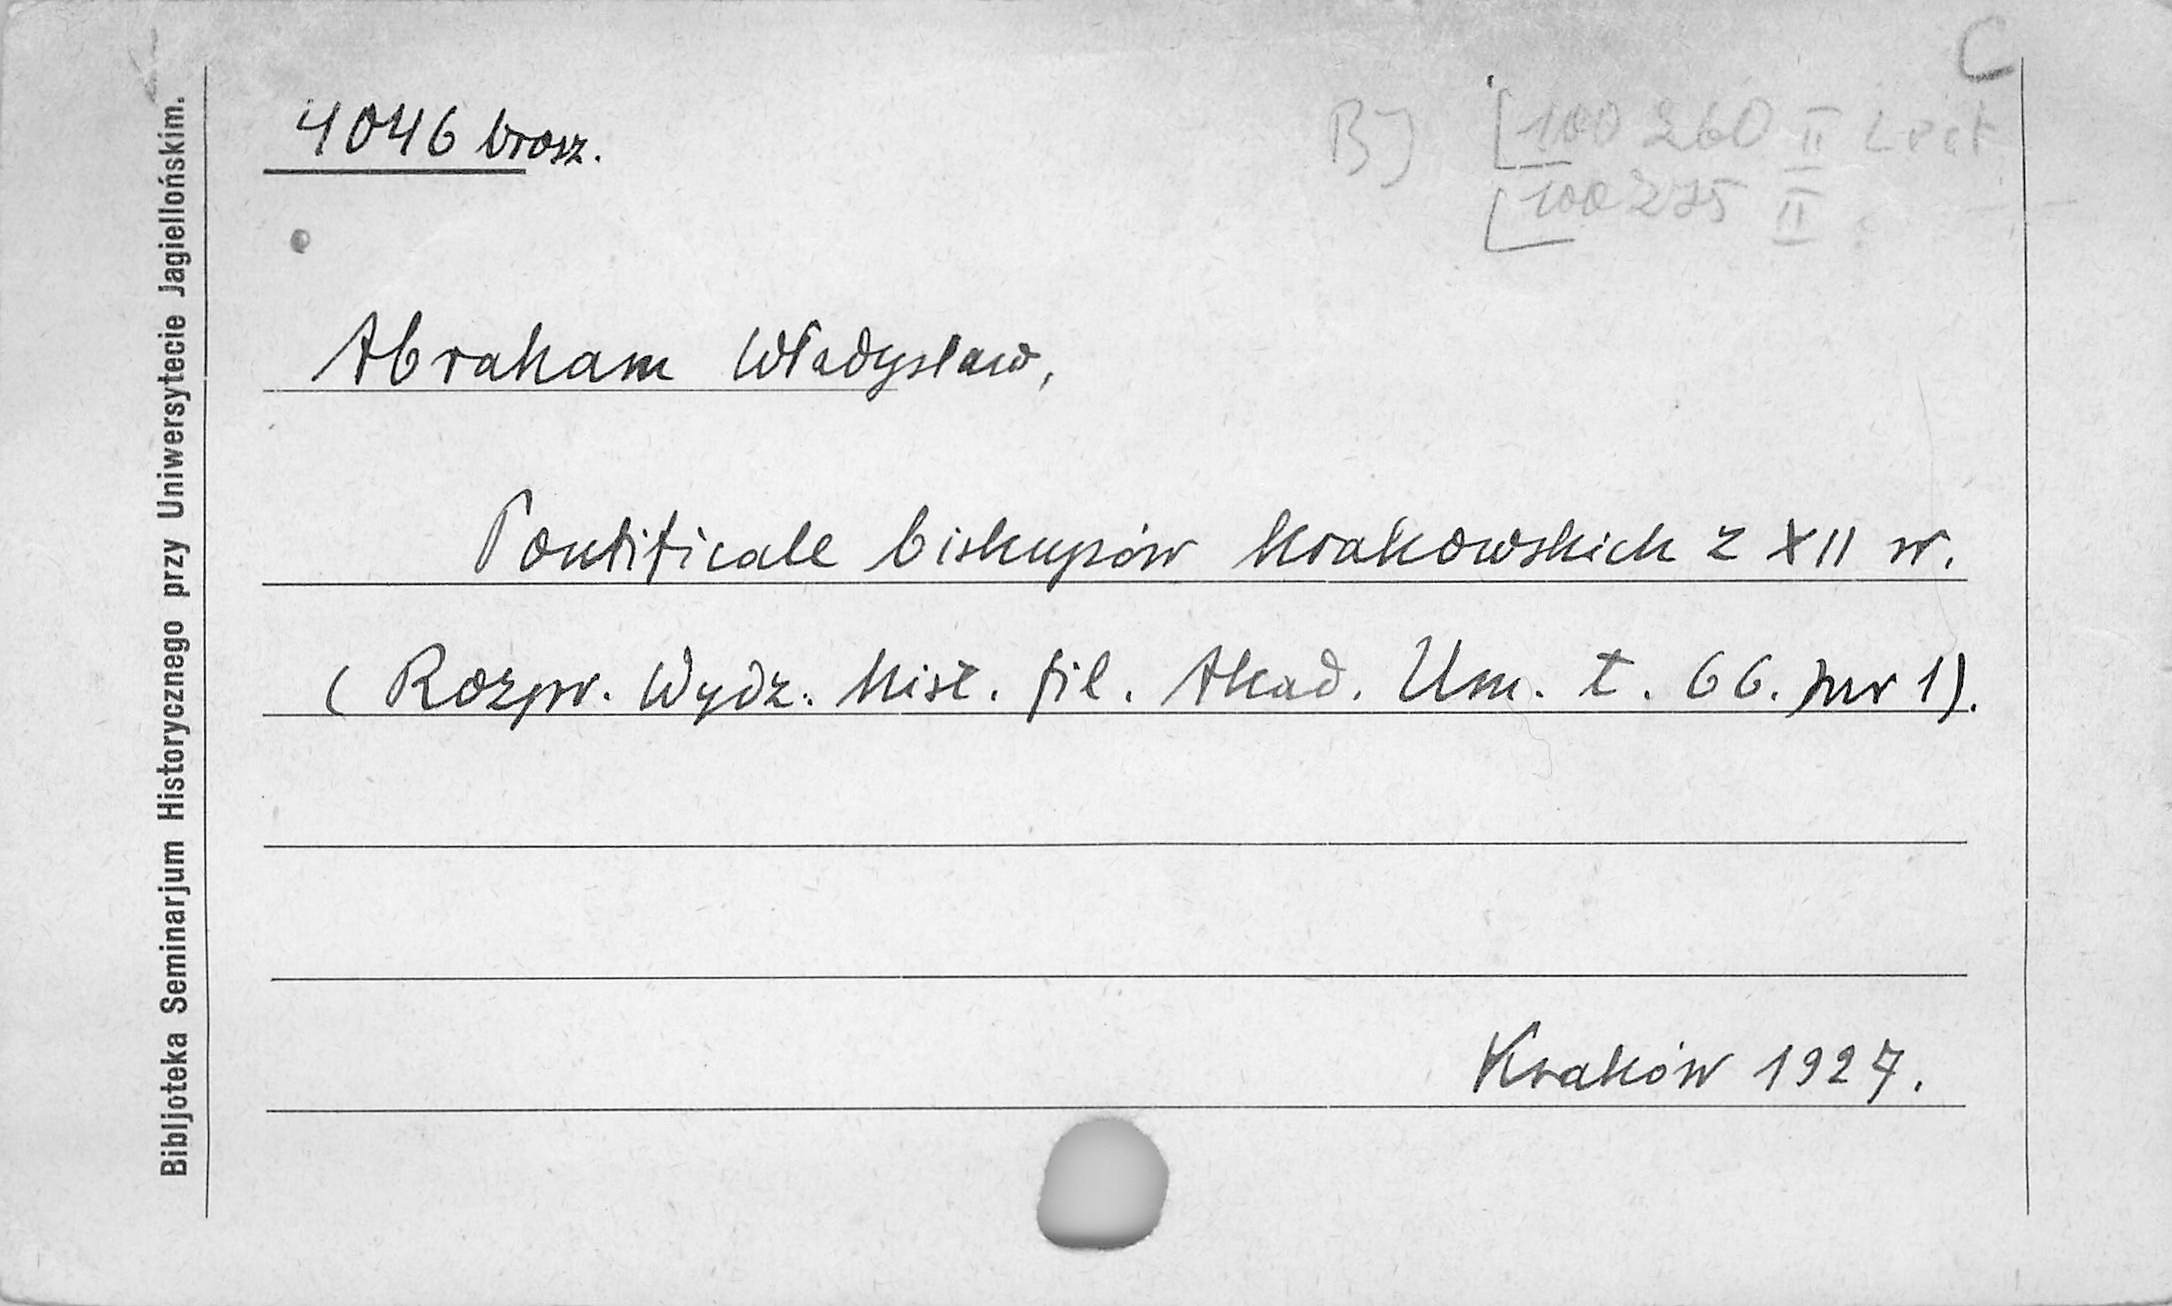 C
4046 brosz.
BJ 100 260 II
100 275 II
Abraham Władysław,
Pontificale biskupów krakowskich z XII w.
(Rozpr. Wydz. hist. fil. Akad. Um. t. 66. nr 1).
Kraków 1927.
Bibljoteka Seminarjum Historycznego przy Uniwersytecie Jagiellońskim.